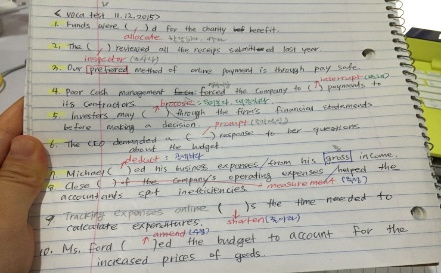 < voca test 11.12.2015>
1. Funds were ( )d for the charity benefit.
allocate
2. The ( ) reviewed all the receipts submitted last year.
inspector
3. Our preferred method of online payment is through pay safe.
4. Poor cash management forced the company to ( ) payments to
interrupt
its contractors.
browse
5. Investors may ( ) through the firm's financial statements
before making a decision.
prompt
6. The CEO demanded a ( ) response to her questions
about the budget.
deduct
7. Michael ( )ed his business expenses from his gross income.
8. Close ( ) of the company's operating expenses helped the
accountants spot inefficiencies
measurement
9. Tracking expenses online ( )s the time needed to
calculate expenditures.
shorten
amend
10. Ms. Ford ( )ed the budget to account for the
increased prices of goods.